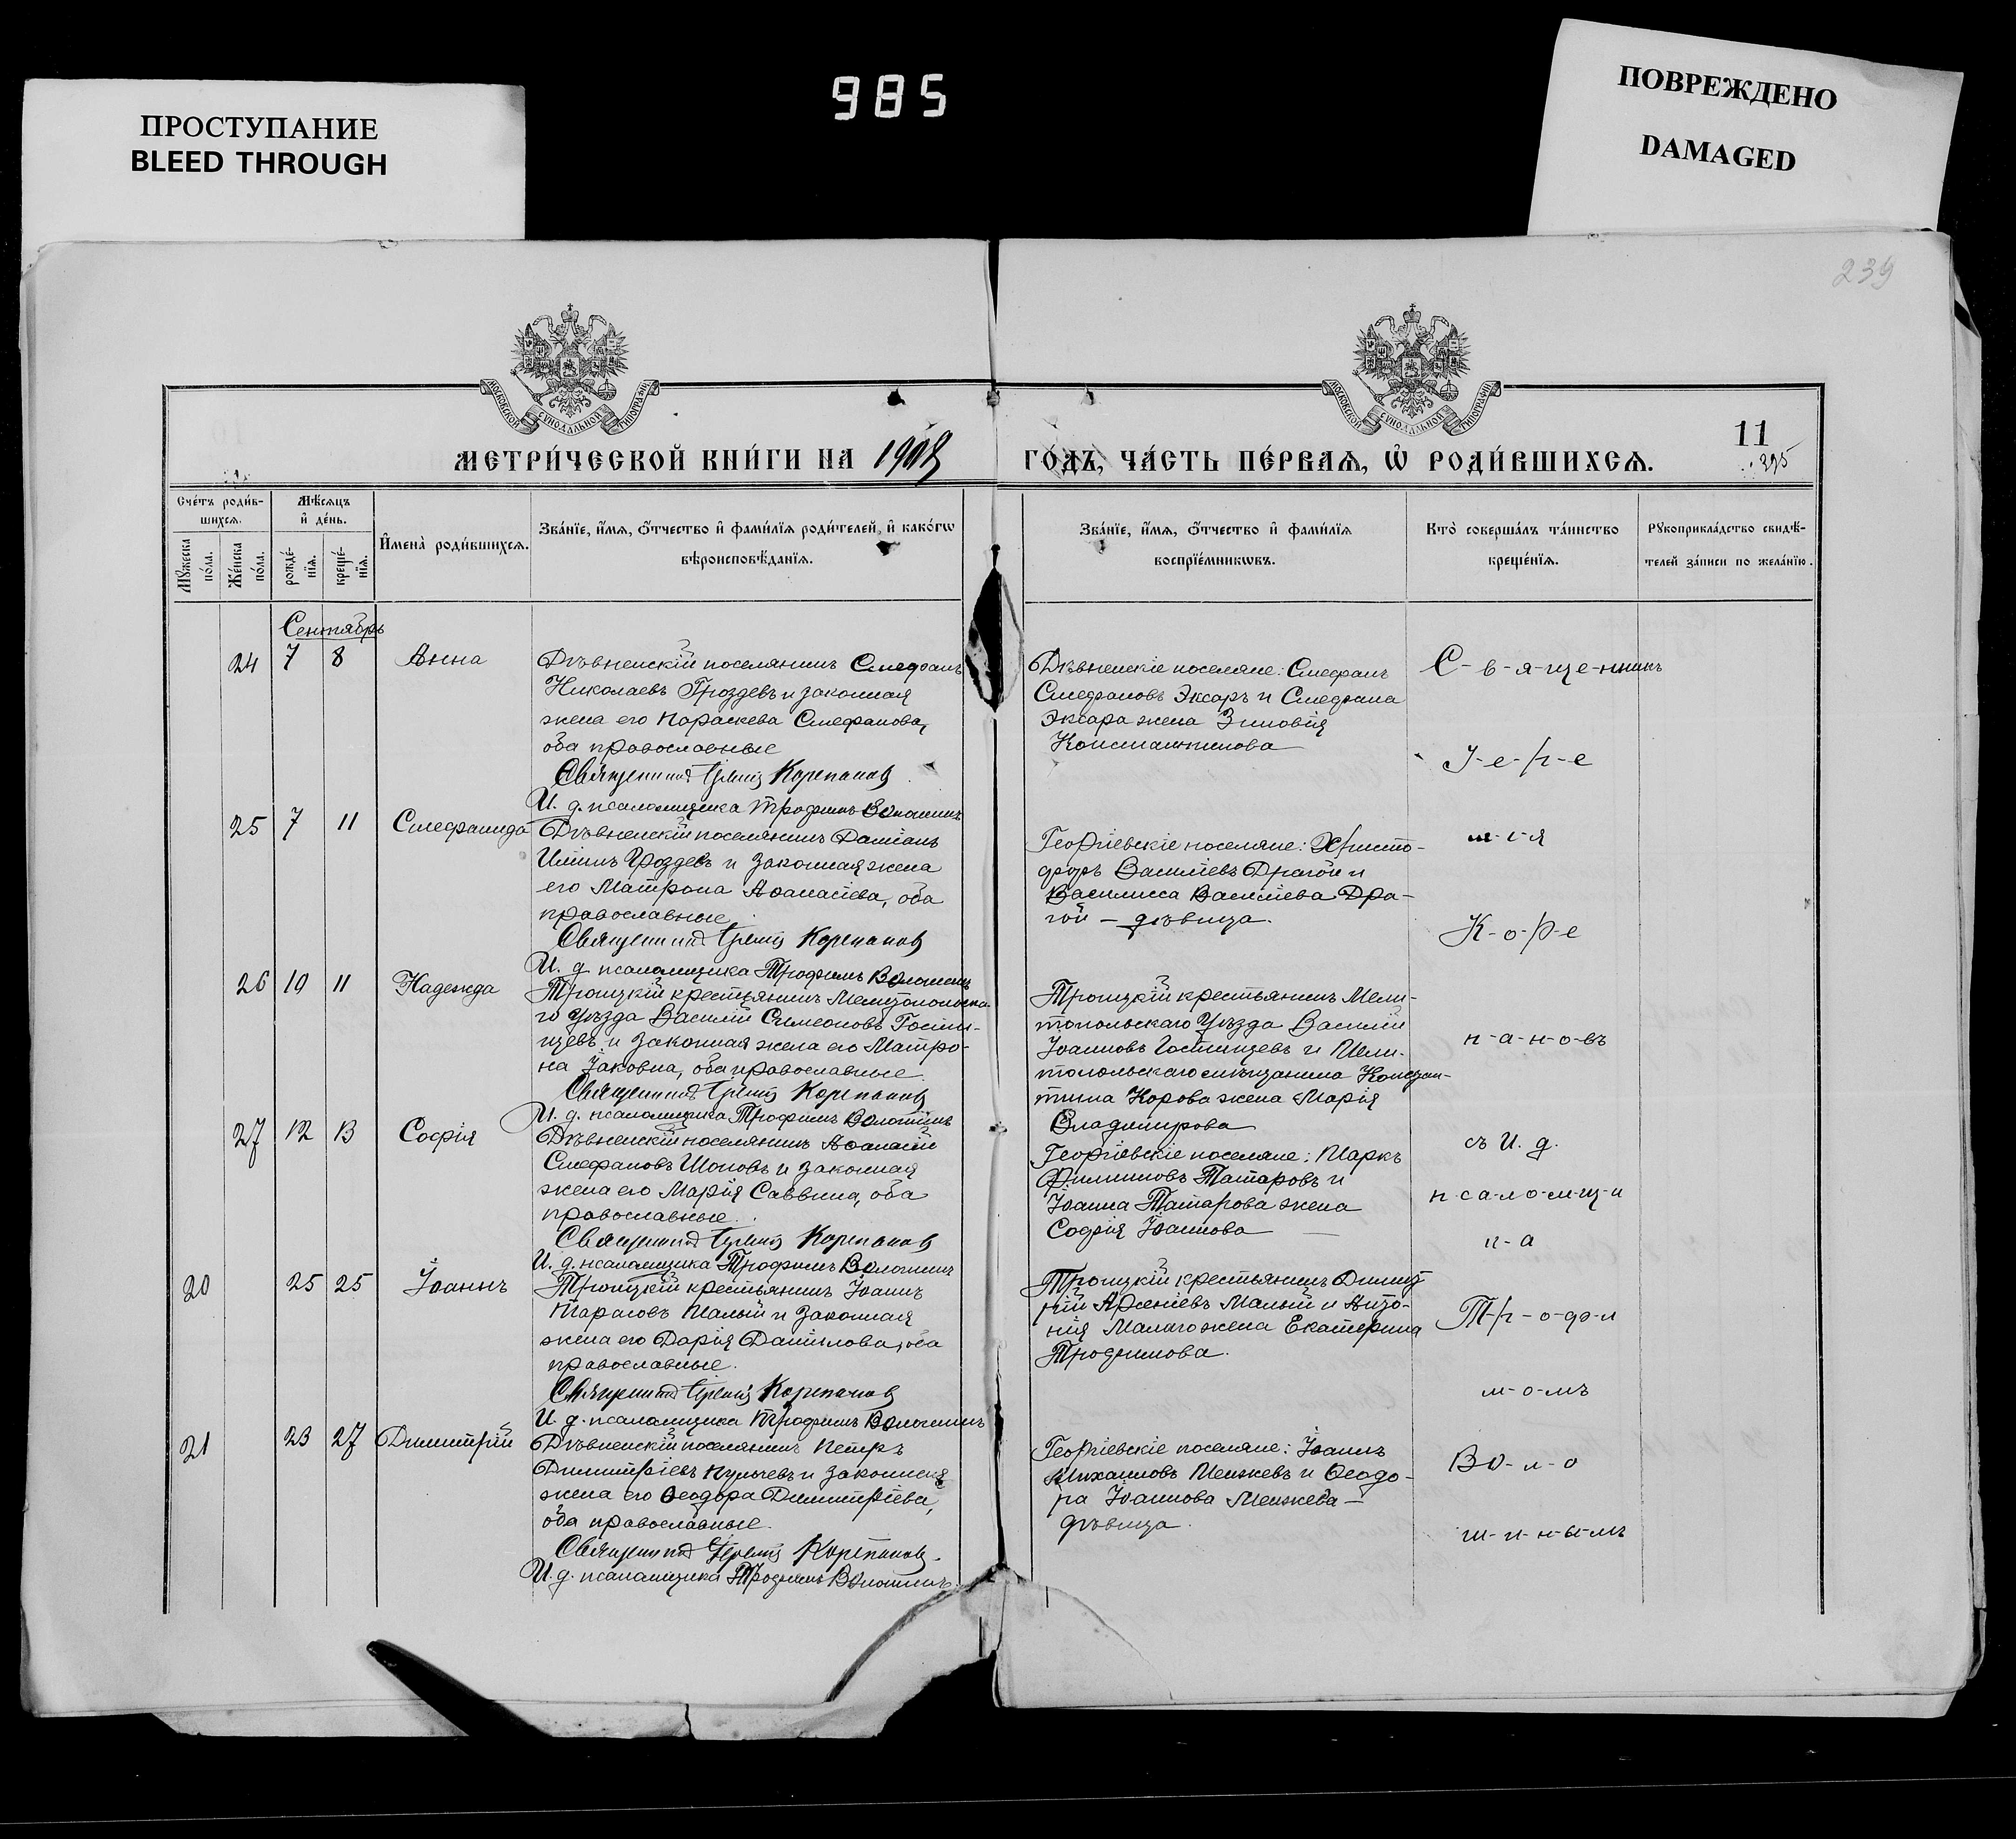 985
ПРОСТУПАНИЕ
BLEED THROUGH
ПОВРЕЖДЕНО
DAMAGED
239
МОСКОВСКОЙ СУНОДАЛЬНОЙ ТИПОГРАФІИ
МОСКОВСКОЙ СУНОДАЛЬНОЙ ТИПОГРАФІИ
МЕТРИ́ЧЕСКОЙ КНИ́ГИ НА 1908
ГО́ДЪ, ЧА́СТЬ ПЕ́РВАѦ, Ѡ҆ РОДИ́ВШИХСѦ.
11
395
Сче́тъ роди́в-
шихсѧ.
Мѣ́сѧцъ
и҆ де́нь.
Му́жеска
по́ла.
Же́нска
по́ла.
рожде́-
нїѧ.
креще́-
нїѧ.
И҆мена̀ роди́вшихсѧ.
Зва́нїе, и҆́мѧ, ѻ҆́тчество и҆ фами́лїѧ роди́телей, и҆ како́гѡ
вѣроисповѣ́данїѧ.
Зва́нїе, и҆́мѧ, ѻ҆́тчество и҆ фами́лїѧ
воспрїе́мникѡвъ.
Кто̀ соверша́лъ та́инство
креще́нїѧ.
Рꙋкоприкла́дство свидѣ́-
телей за́писи по жела́нїю.
Сентябрь
24 7 8 Анна
Дѣвненскій поселянинъ Стефанъ
Николаевъ Гроздевъ и законная
жена его Параскева Стефанова,
оба православные
Священникъ Іереміѧ Корепановъ
И. д. псаломщика Трофимъ Волошинъ
Дѣвненскіе поселяне: Стефанъ
Стефановъ Эксаръ и Стефана
Эксара жена Зиновія
Константинова
25 7 11 Стефанида
Дѣвненскій поселянинъ Даміанъ
Иліинъ Гроздевъ и законная жена
его Матрона Аѳанасіева, оба
православные
Священникъ Іереміѧ Корепановъ
И. д. псаломщика Трофимъ Волошинъ
Георгіевскіе поселяне: Христо-
форъ Василіевъ Драгой и
Василисса Василіева Дра-
гой — дѣвица.
26 10 11 Надежда
Троицкій крестьянинъ Мелитопольска-
го Уѣзда Василій Симеоновъ Гостин-
щевъ и законная жена его Матро-
на Іаковна, оба православные.
Священникъ Іереміѧ Корепановъ
И. д. псаломщика Трофимъ Волошинъ
Троицкій крестьянинъ Мели-
топольскаго Уѣзда Василій
Іоанновъ Гостинщевъ и Мели-
топольскаго мѣщанина Констан-
тина Корова жена Марія
Владимирова
27 12 13 Софія
Дѣвненскій поселянинъ Аѳанасій
Стефановъ Шоповъ и законная
жена его Марія Саввина, оба
православные.
Священникъ Іереміѧ Корепановъ
И. д. псаломщика Трофимъ Волошинъ
Георгіевскіе поселяне: Маркъ
Филипповъ Татаровъ и
Іоанна Татарова жена
Софія Іоаннова
20 25 25 Іоаннъ
Троицкій крестьянинъ Іоаннъ
Тарасовъ Малый и законная
жена его Дарія Даніилова, оба
православные.
Священникъ Іереміѧ Корепановъ
И. д. псаломщика Трофимъ Волошинъ
Троицкій крестьянинъ Димит-
рій Арсеніевъ Малый и Анто-
нія Малаго жена Екатерина
Трофимова.
21 23 27 Димитрій
Дѣвненскій поселянинъ Петръ
Димитріевъ Кулычевъ и законная
жена его Ѳеодора Димитріева,
оба православные.
Священникъ Іереміѧ Корепановъ.
И. д. псаломщика Трофимъ Волошинъ.
Георгіевскіе поселяне: Іоаннъ
Михаиловъ Менжевъ и Ѳеодо-
ра Іоаннова Менжева —
дѣвица.
С-в-я-ще-нникъ
І-е-р-е
м-і-я
К-о-р-е
п-а-н-о-въ
съ И. д.
п-са-ло-м-щ-и
к-а
Т-р-о-ф-и
м-о-мъ
Во-л-о
ш-и-н-ы-мъ